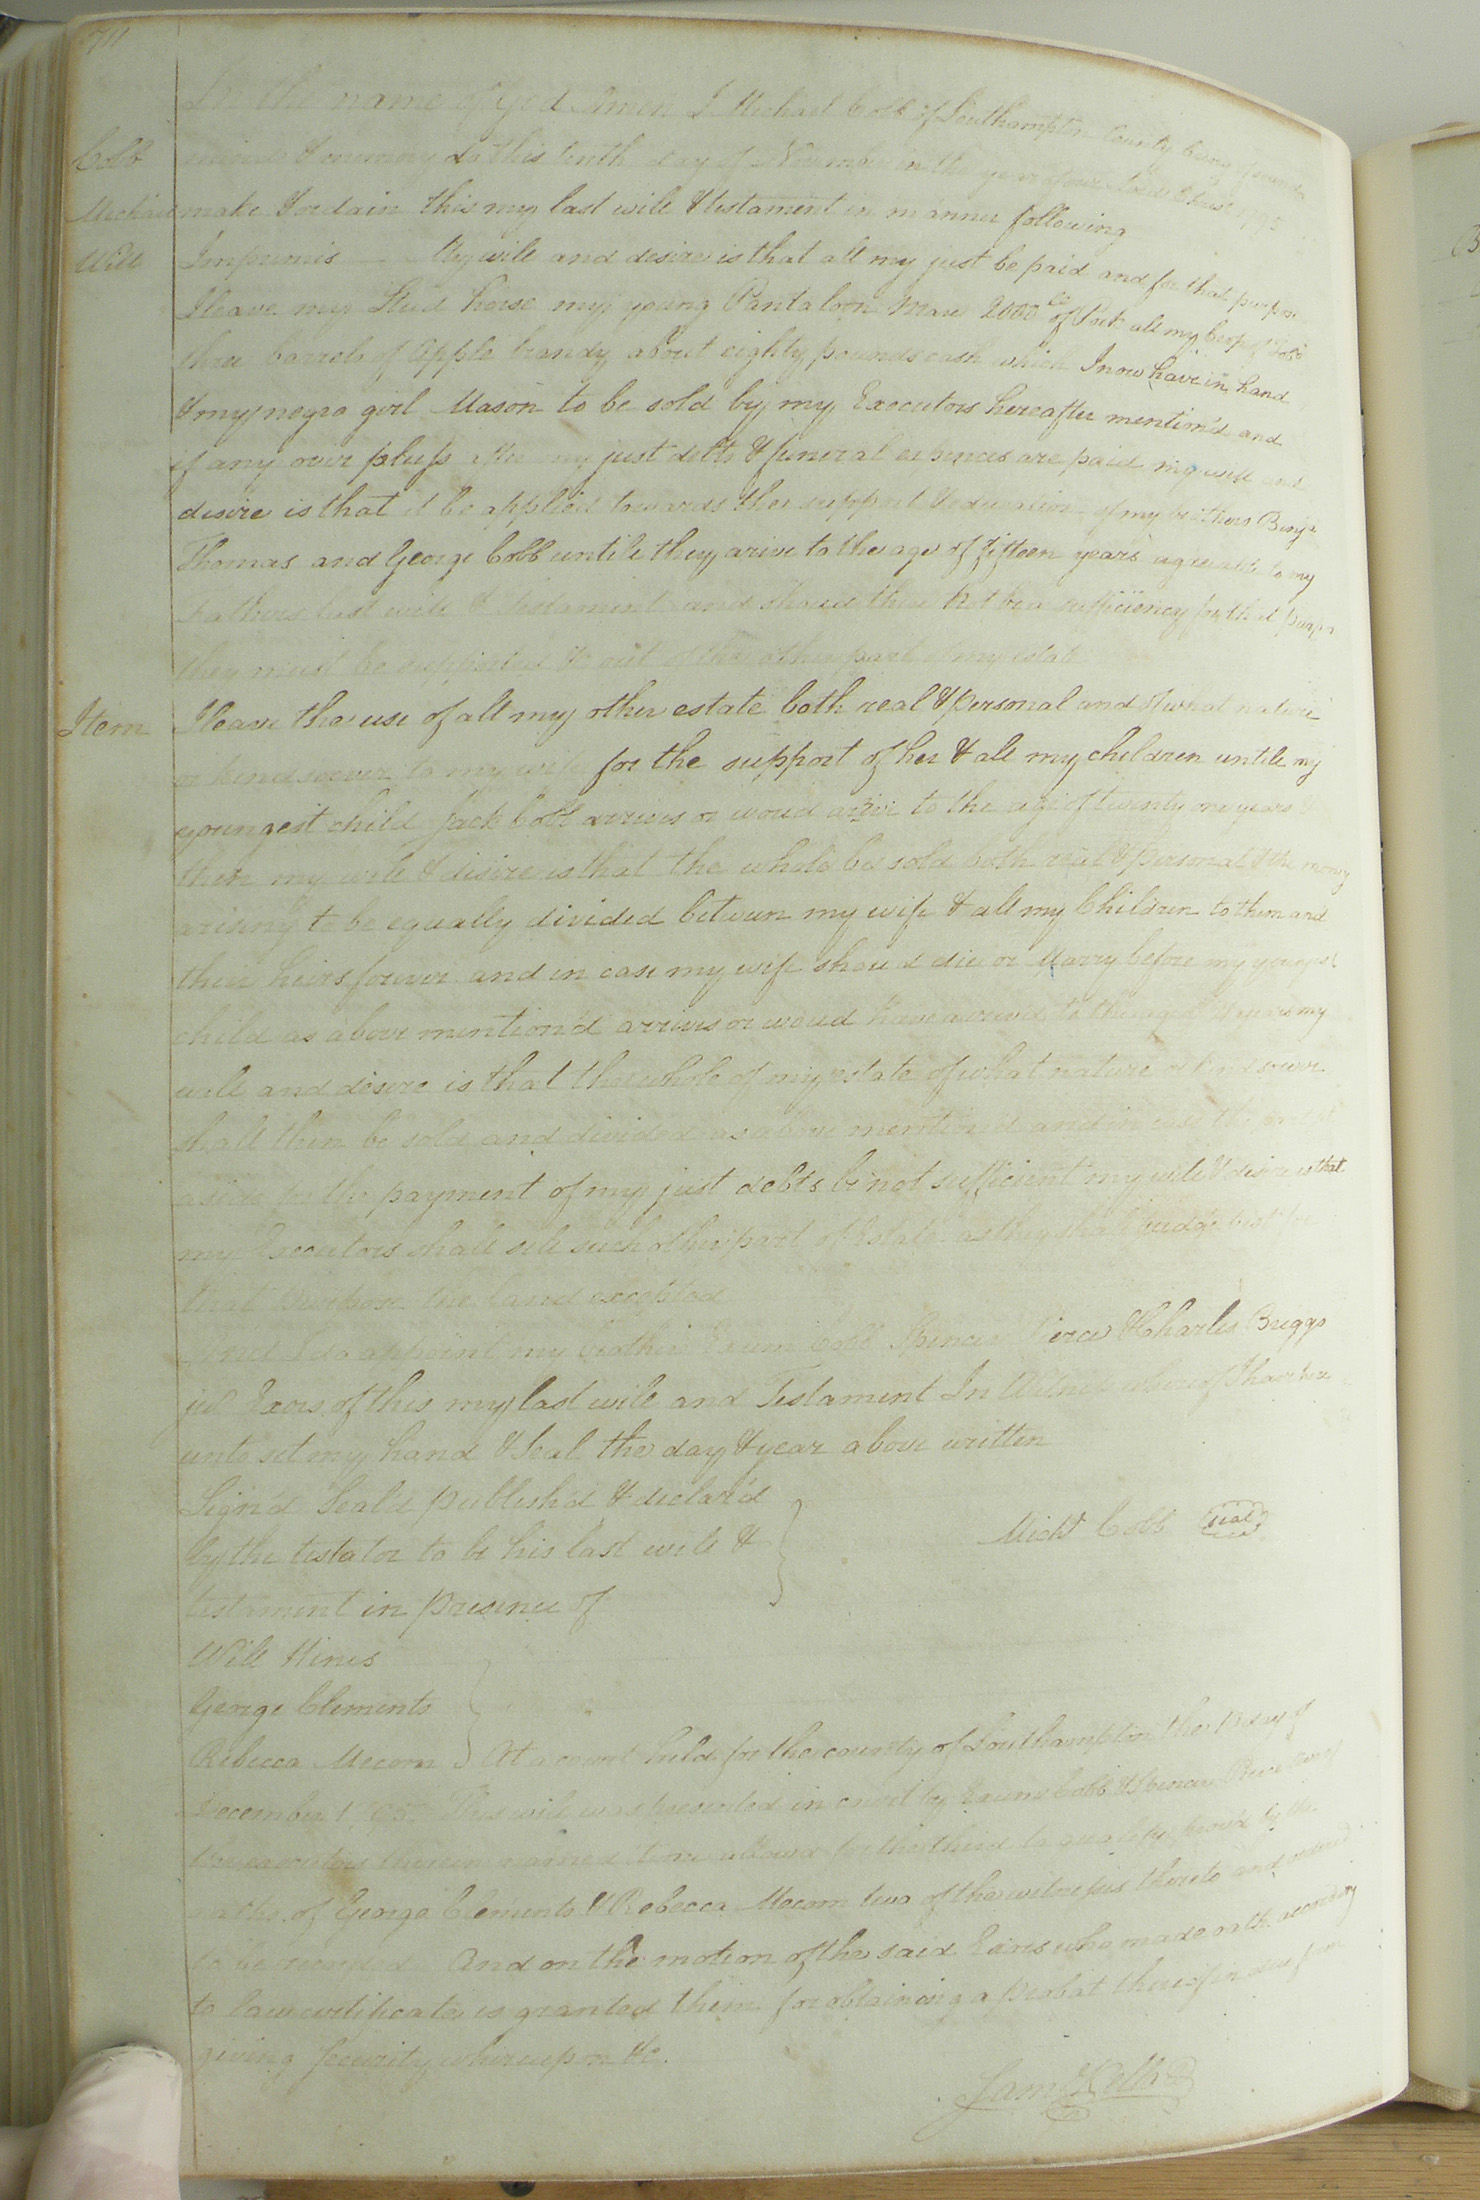 In the name of God Amen I Michael Cobb of Southampton County being of sound
Cobb
mind & memory do this tenth day of November in the year of our Lord Christ 1795
Michael
make & ordain this my last will & testament in manner following
Will
Impremis — My will and desire is that all my just be paid and for that purpose
I leave my Stud horse my young Pantaloon Mare 2000 lb of Pork all my
three barrels of apple brandy about eighty pounds cash which I now have in hand
& my negro girl Mason to be sold by my Executors hereafter mention'd and
if any over pluss after my just debts & funeral expences are paid my will and
desire is that it be applied towards the support & education of my brothers Benja
Thomas and George Cobb untill they arive to the age of fifteen years agreeable to my
Fathers last will & testament and should there not be a sufficiency for that purpos
they must be supported & out of the other part of my estate
Item I leave the use of all my other estate both real & personal and of what nature
or kind soever to my wife for the support of her & all my children untill my
youngest child Jack Cobb arrives or woud arive to the age of twenty one years
then my will & desire is that the whole be sold both real & personal & the money
arising to be equally divided between my wife & all my Children to them and
their heirs forever and in case my wife shoud die or Marry before my youngest
child as above mention'd arrives or woud have arived to the age of years my
will and desire is that the whole of my estate of what nature or kind soever
shall then be sold and divided as above mention'd and in case the
aside for the payment of my just debts be not sufficient my will & desire is that
my Executors shall sell such other part of Estate as they shall judge best for
that purpose the land excepted
and I do appoint my brother Exum Cobb Spencer Pierce & Charles Briggs
jul Exors of this my last will and Testament In Witness whereof I have here
unto set my hand & Seal the day & year above written
Sign'd Seal'd publish'd & declar'd
by the testator to be his last will &
Michl Cobb seal
testament in presence of
Will Hines
George Clements
Rebecca Mecom At a court held for the county of Southampton the day of
December 1795. This will was presented in court by Exum Cobb & Spencer Pierce two of
the executors therein named time allowed for the third to qualify proved by the
oaths of George Clements & Rebecca Mecom two of the witnesses thereto and ordered
to be recorded And on the motion of the said Exors who made oath according
to law certificate is granted them for obtaining a probat thereof in due form
giving security whereupon &c.
Saml Kello